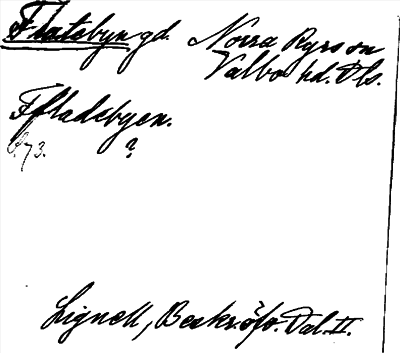 Flatsbyn gd. Norra Ryrs sn
Valbo hd. Dls.
Ffladsbyen.
S. 73. ?
Lignell, Beskr. öfv. Dal. II.